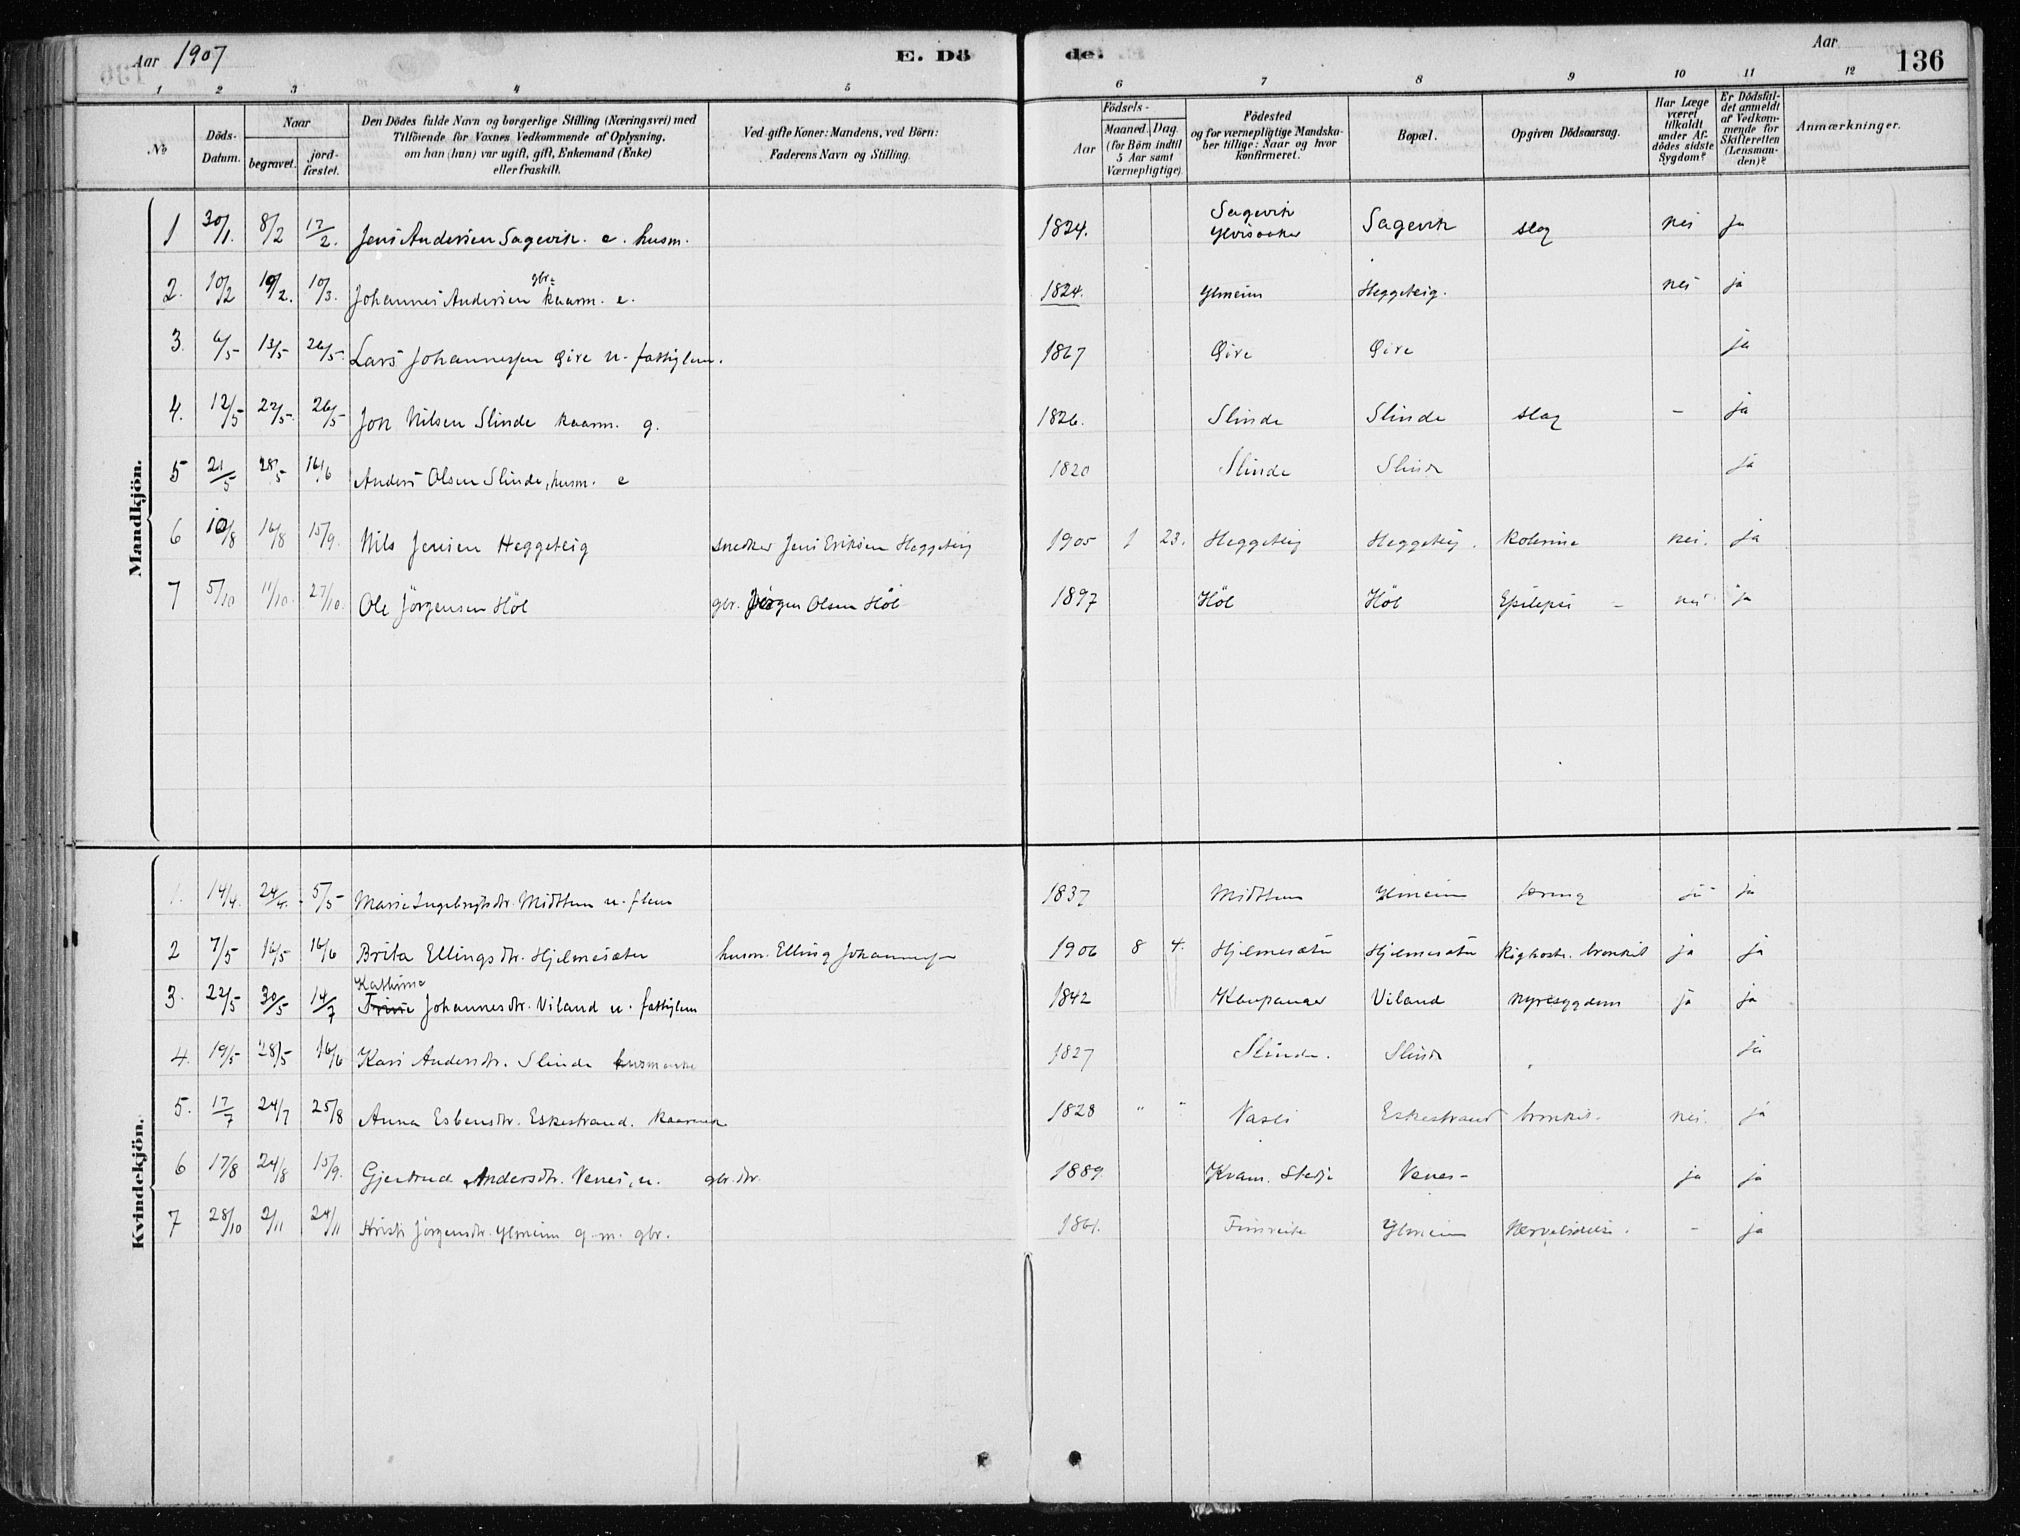 Aar 1907
E. Dö
de.
Aar
136
1 2 3 4 5 6 7 8 9 10 11 12
No
Döds-Datum.
Naar
begravet.
jord-fæstet.
Den Dödes fulde Navn og borgerlige Stilling (Næringsvei) med
Tilföiende for Voxnes Vedkommende af Oplysning,
om han (hun) var ugift, gift, Enkemand (Enke)
eller fraskilt.
Ved gifte Koner: Mandens, ved Börn:
Faderens Navn og Stilling.
Födsels-
Aar
Maaned. Dag.
(for Börn indtil
5 Aar samt
Værnepligtige).
Födested
og for værnepligtige Mandska-
ber tillige: Naar og hvor
konfirmeret.
Bopæl.
Opgiven Dödsaarsag.
Har Læge
været
tilkaldt
under Af-
dödes sidste
Sygdom?
Er Dödsfal-
det anmeldt
af Vedkom-
mende for
Skifteretten
(Lensman-
den)?
Anmærkninger.
Mandkjön.
1 30/1. 8/2 17/2. Jens Andersen Sagevik. e. husm. 1824. Sagevik Ylvisaker Sagevik slag nei ja
2. 10/2 19/2. 10/3. Johannes Andersen gbr. kaarm. e. 1824. Ylmeim Heggeteig. nei ja
3. 6/5 13/5 26/5. Lars Johannessen Eire u. fattiglem. 1867 Eire Eire ja
4. 12/5 22/5. 26/5 Jon Nilsen Slinde kaarm. g. 1826. Slinde Slinde slag - ja
5 21/5 28/5 16/6 Anders Olsen Slinde, husm. e 1820 Slinde Slinde ja
6 10/8 16/8 15/9. Nils Jensen Heggeteig snedker Jens Eriksen Heggeteig 1905 1 23. Heggeteig Heggeteig. kolerine nei. ja
7 5/10 11/10. 27/10. Ole Jörgensen Höl gbr. Jörgen Olsen Höl 1897 Höl Höl Epilepsi - nei ja
Kvindekjön.
1. 14/4. 24/4. 5/5 Marie Ingebrigtsdtr. Midttun u. flem 1837 Midttun Ylmeim tæring ja ja
2 7/5 16/5 16/6 Brita Ellingsdtr. Hjelmesæter husm. Elling Johannessen 1906 8 4. Hjelmesæter Hjelmesæter kighoste. bronkit ja ja
3. 22/5 30/5 14/7 Kathrine
Trine Johannesdtr. Viland u. fattiglem 1842 Kaupanger Viland nyresygdom ja ja
4. 19/5 28/5 16/6 Kari Andersdtr. Slinde husmenke 1827 Slinde. Slinde " ja
5. 17/7 24/7 25/8 Anna Esbensdtr. Eskestrand. kaarenke 1828 " " Vasli Eskestrand bronkit. nei. ja
6 17/8 24/8 15/9. Gjertrud Andersdtr. Venes, u. gbr. dtr. 1889. Kvam. Stedje Venes- ja ja
7 28/10 2/11 24/11 Kristi Jörgensdtr. Ylmeim g. m. gbr. 1861. Fimreite Ylmeim Nervelidelse. - ja